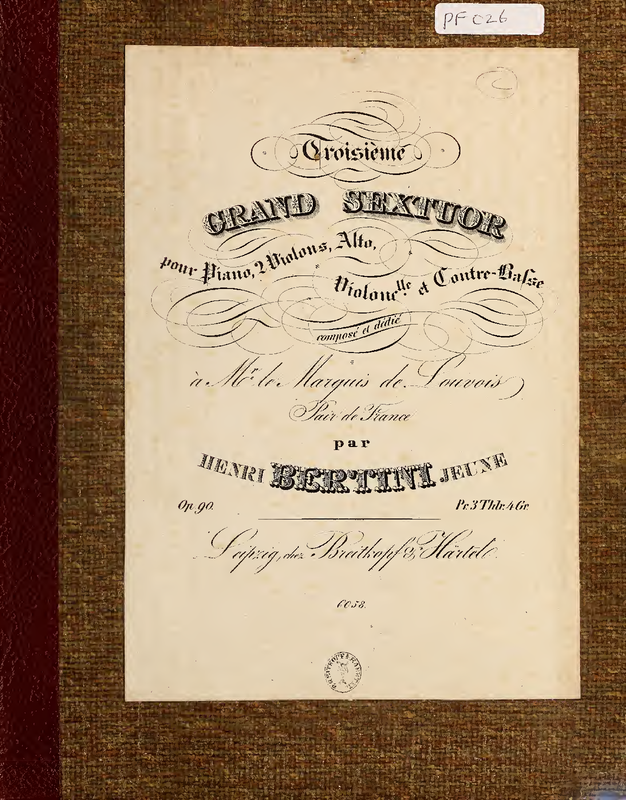 PF C26
Troisième
GRAND SEXTUOR
pour Piano, 2 Violons, Alto,
Violonc.lle et Contre-Baſse
composé et dédié
à Mr. le Marquis de Louvois
Pair de France
par
HENRI BERTINI JEUNE
Op. 90. Pr. 3 Thlr. 4 Gr.
Leipzig, chez Breitkopf & Härtel.
6058.